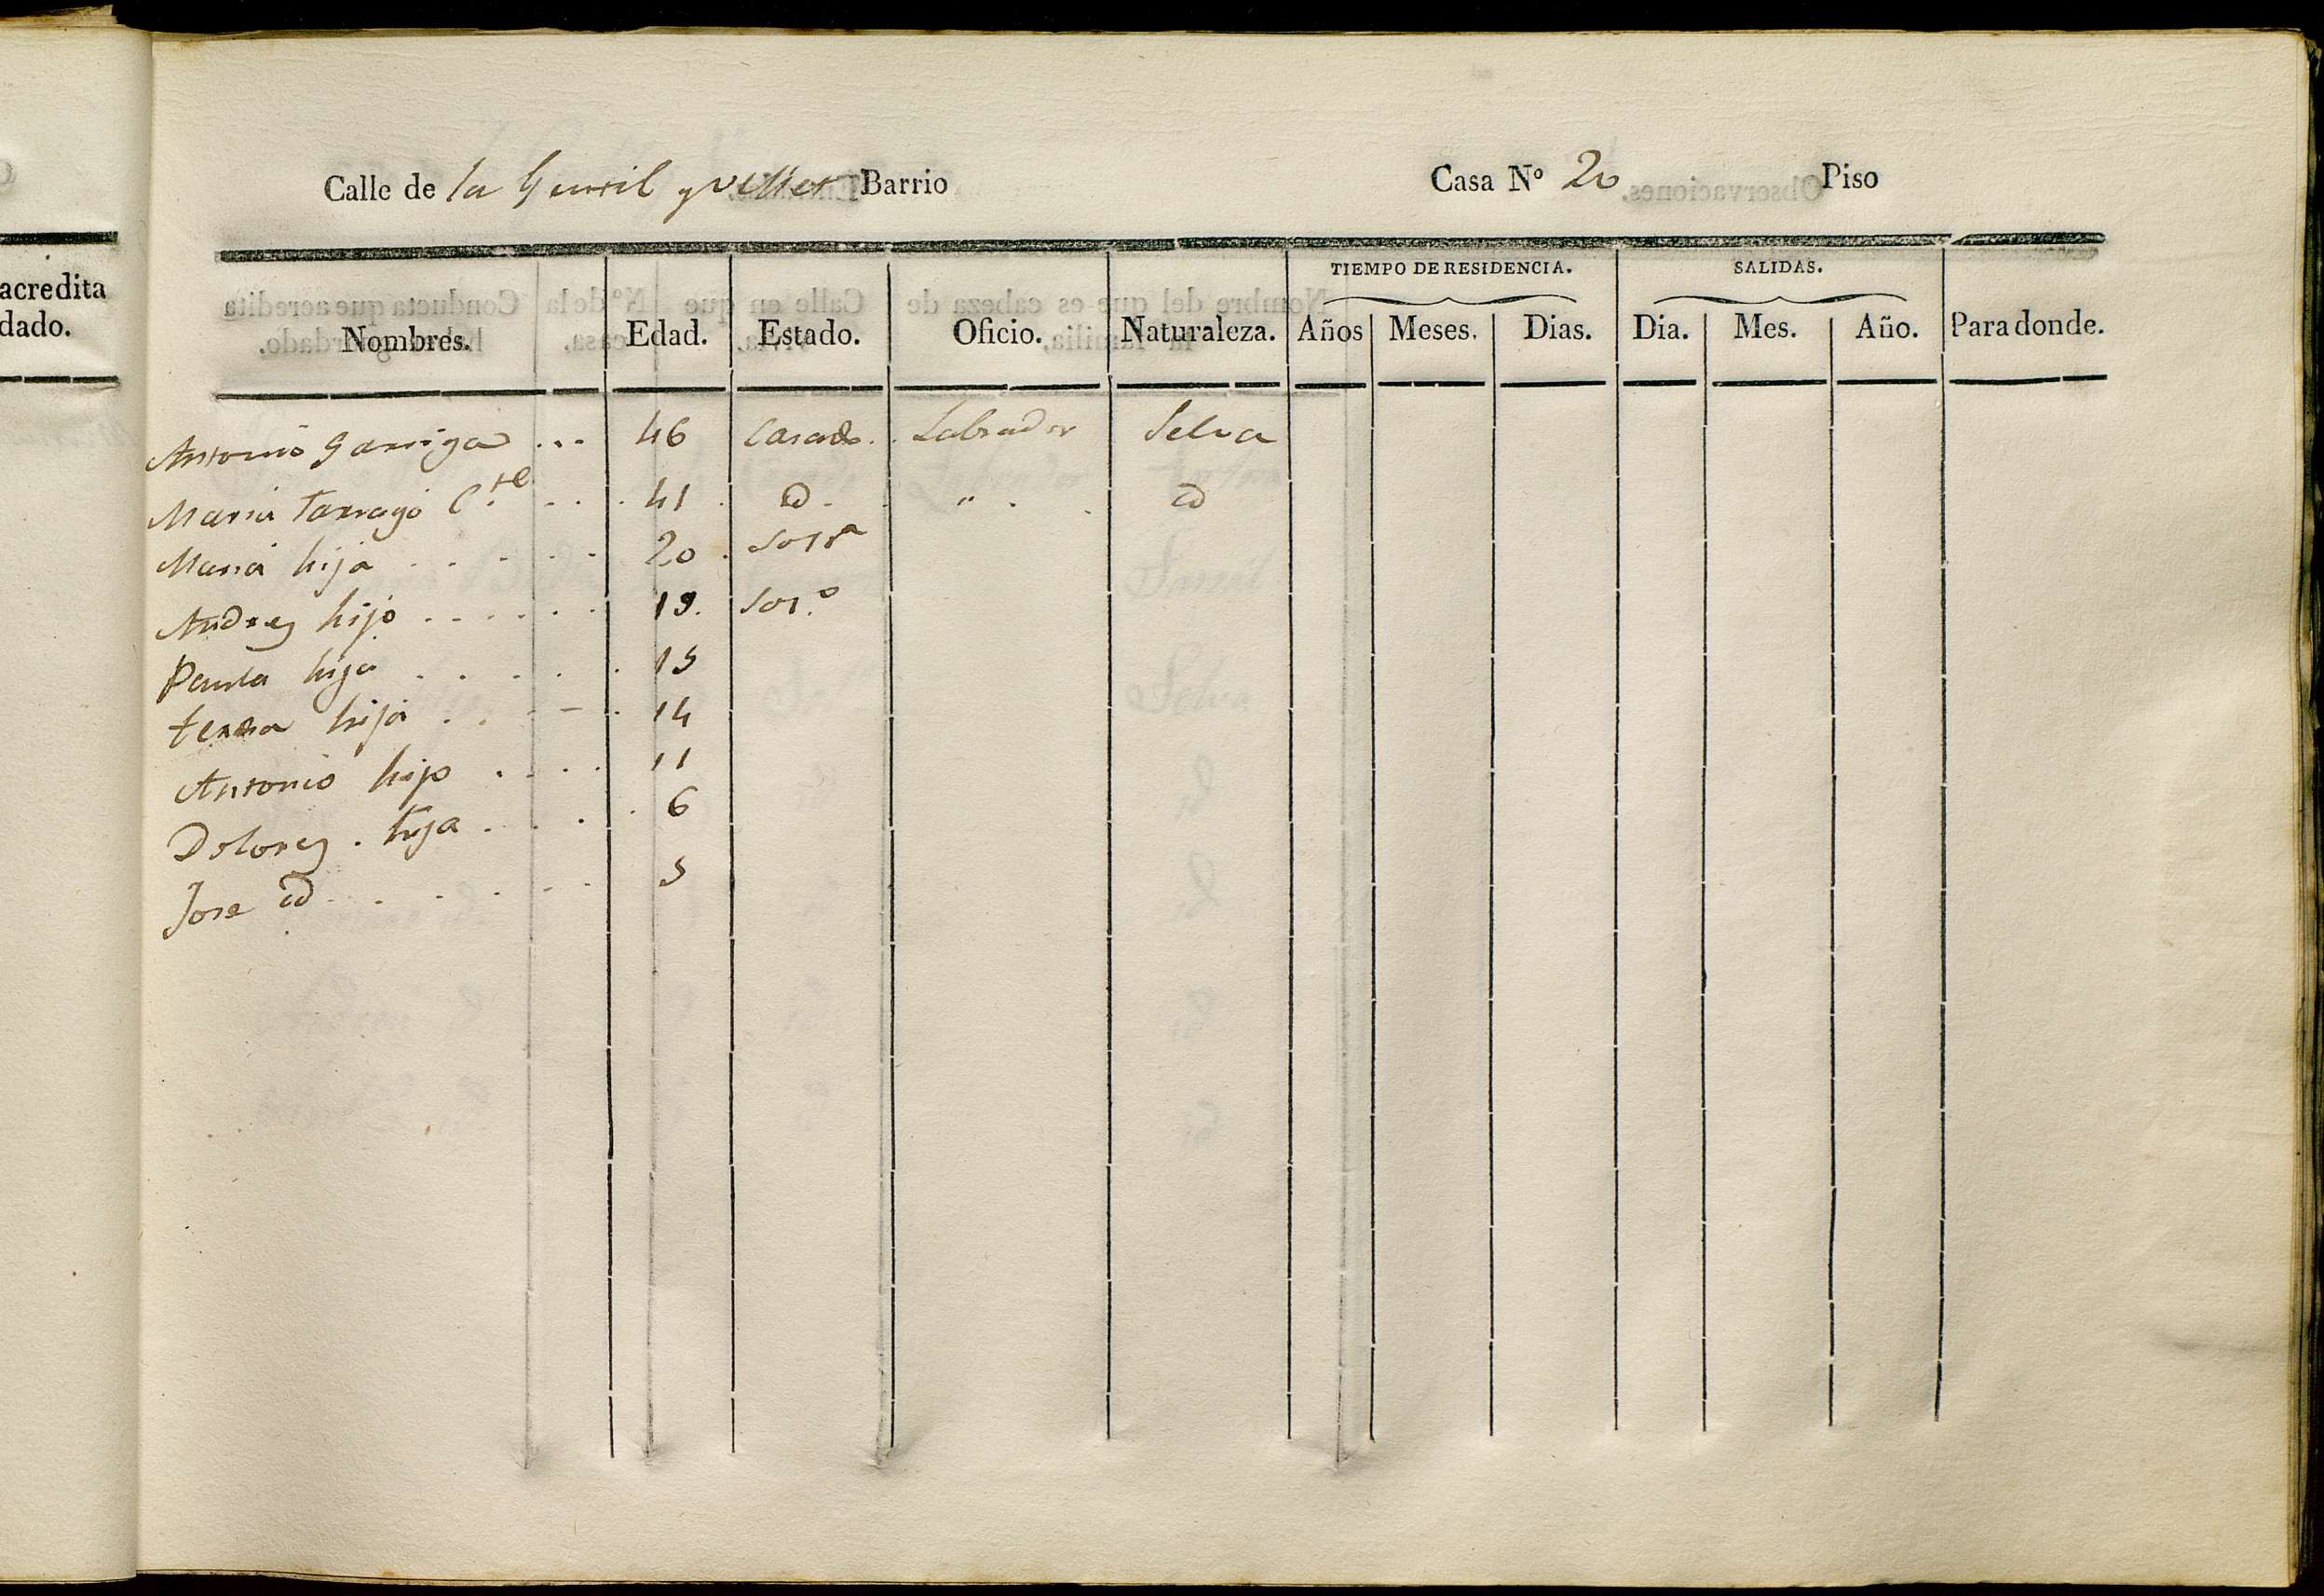 acredita
dado.
Calle de la Barrio Casa Nº 20 Piso
TIEMPO DE RESIDENCIA. SALIDAS.
Nombres. Edad. Estado. Oficio. Naturaleza. Años Meses. Dias. Dia. Mes. Año. Para donde.
Antonio Garriga ... 46 Casado. Labrador Selva
Maria Tarrago C.te . . . 41 . id . " . id
Maria hija . . . . . 20 . Solta
Andres hijo . . . . . . 19. Sol.o
Paula hija . . . . . 15
teresa hija . . . . 14
Antonio hijo . . . . 11
Dolores . hija . . . . 6
Jose id . . . . . . 5